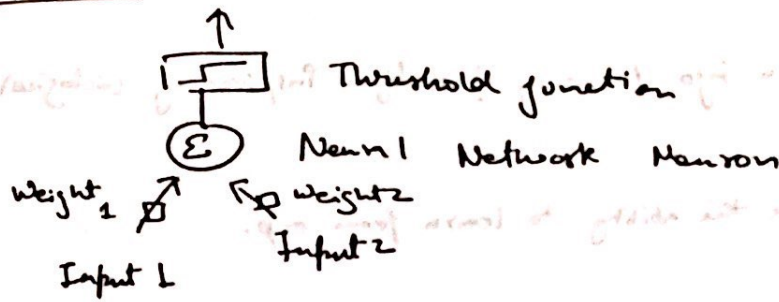 Threshold function
Σ Neural Network Neuron
Weight 1 Weight 2
Input 1 Input 2